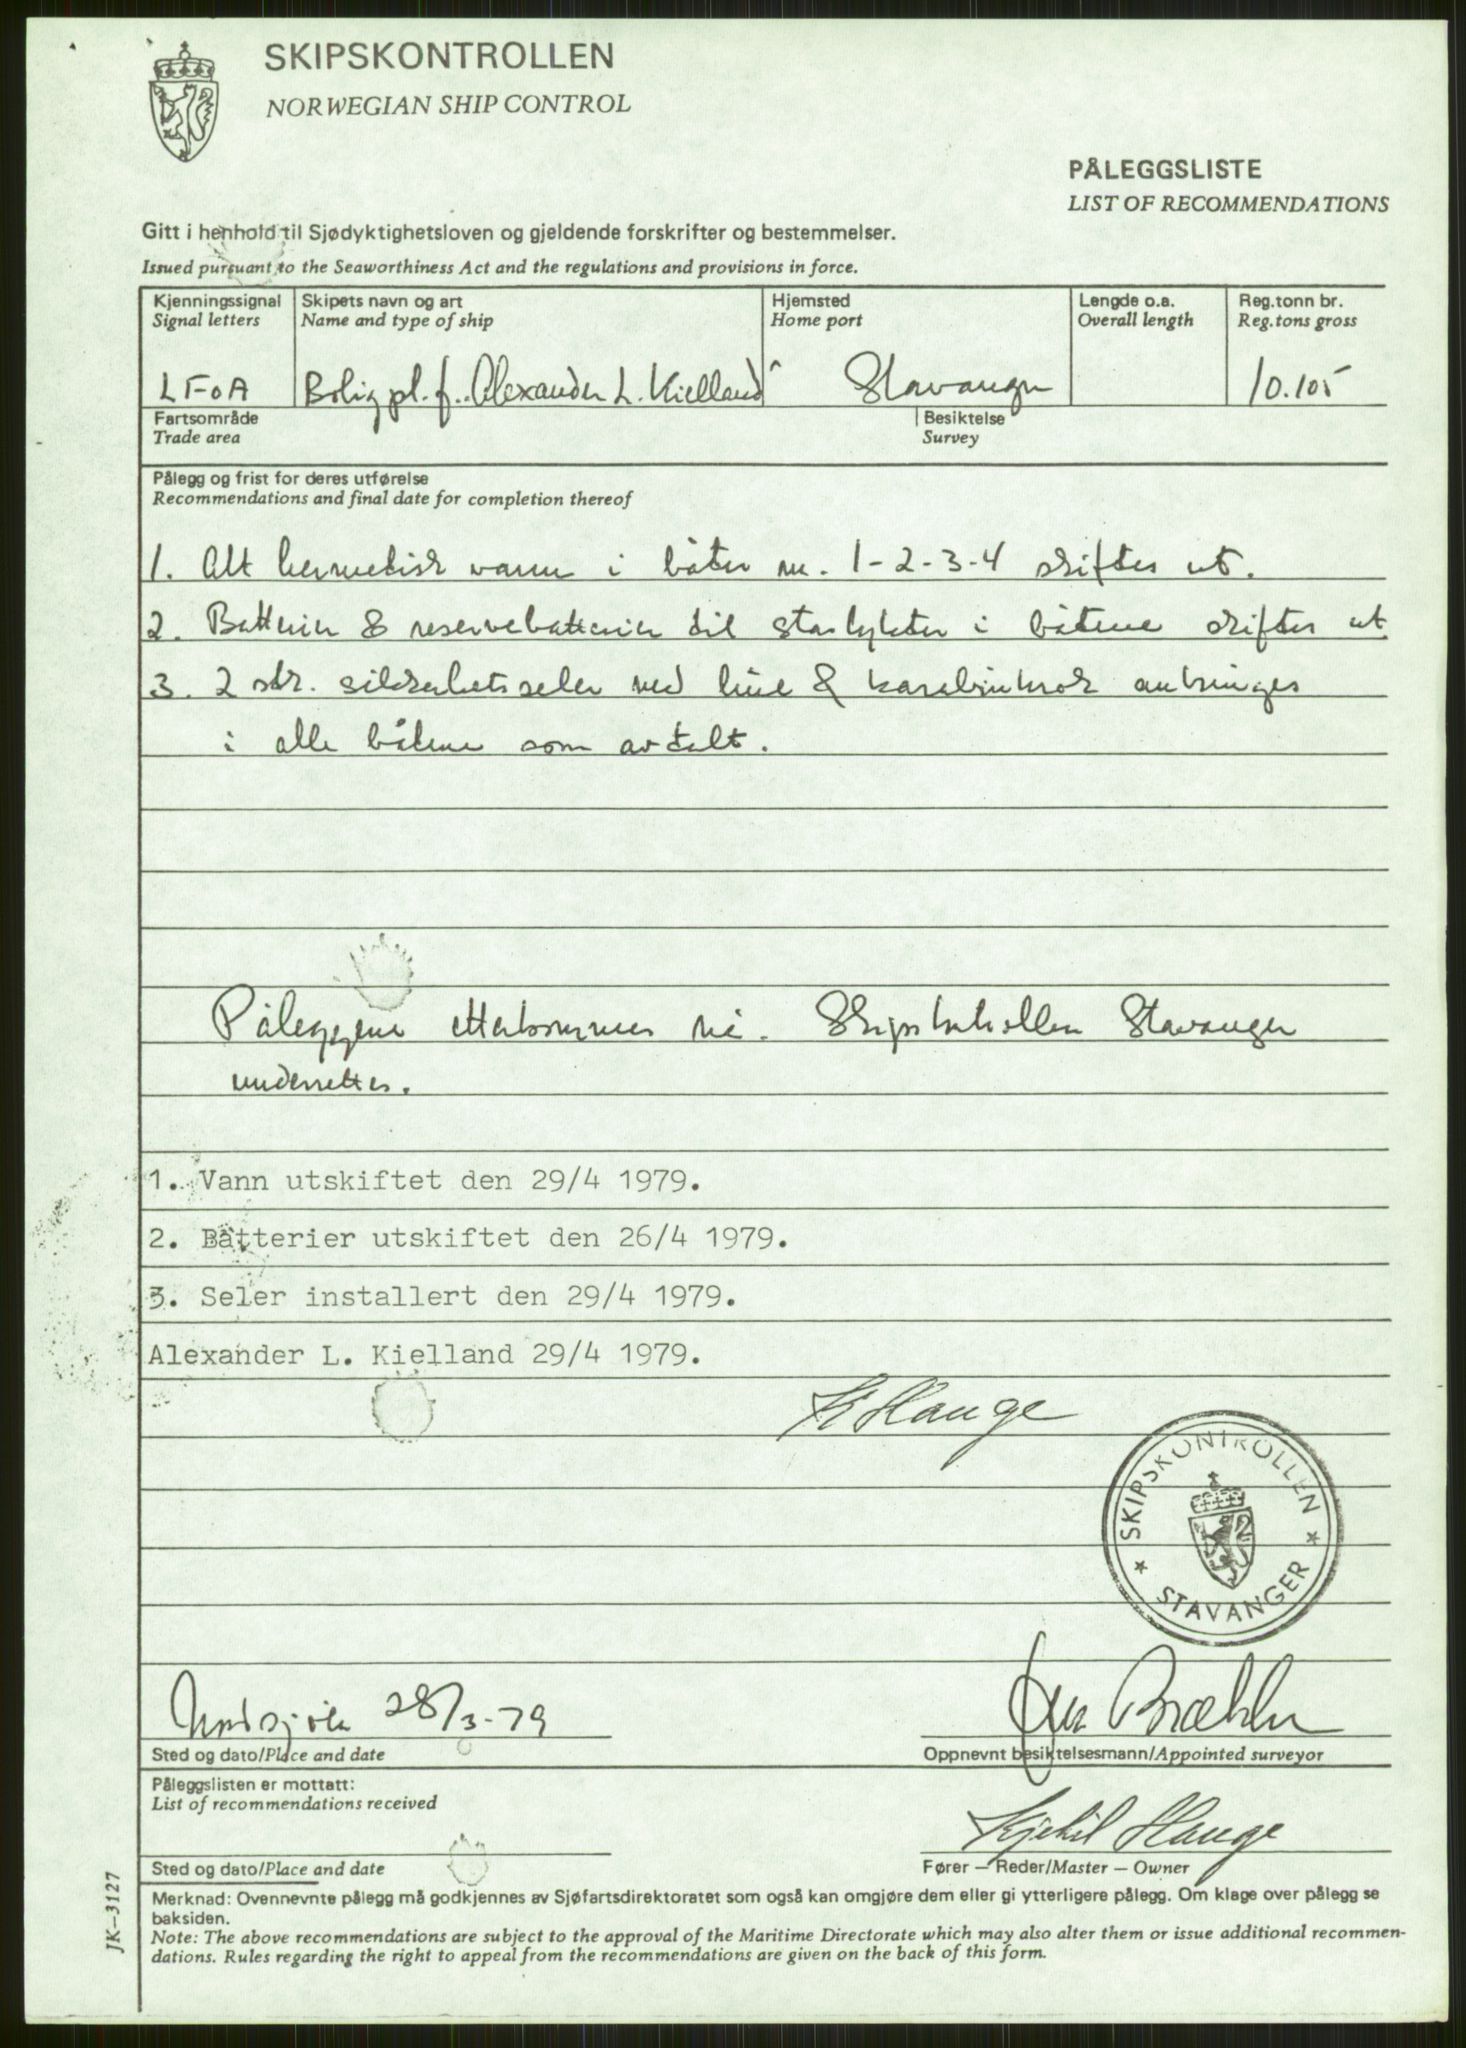 SKIPSKONTROLLEN
NORWEGIAN SHIP CONTROL
PÅLEGGSLISTE
LIST OF RECOMMENDATIONS
Gitt i henhold til Sjødyktighetsloven og gjeldende forskrifter og bestemmelser.
Issued pursuant to the Seaworthiness Act and the regulations and provisions in force.
Kjenningssignal Skipets navn og art Hjemsted Lengde o.a. Reg.tonn br.
Signal letters Name and type of ship Home port Overall length Reg.tons gross
LFOA Bolig pl.f. "Alexander L. Kielland" Stavanger 10.105
Fartsområde Besiktelse
Trade area Survey
Pålegg og frist for deres utførelse
Recommendations and final date for completion thereof
1. Alt hermetisk vann i båter nr. 1-2-3-4 skiftes ut.
2. Batterier & reservebatterier til stavlykter i båtene skiftes ut.
3. 2 stk. sikkerhetsseler med line & karabinkrok anbringes
i alle båtene som avtalt.
Påleggene etterkommes nå. Skipskontrollen Stavanger
underrettes.
1. Vann utskiftet den 29/4 1979.
2. Batterier utskiftet den 26/4 1979.
3. Seler installert den 29/4 1979.
Alexander L. Kielland 29/4 1979.
K Hauge
SKIPSKONTROLLEN
STAVANGER
Nordsjøen 28/3-79
Sted og dato/Place and date Oppnevnt besiktelsesmann/Appointed surveyor
Påleggslisten er mottatt:
List of recommendations received
Kjetil Hauge
Sted og dato/Place and date Fører – Reder/Master – Owner
Merknad: Ovennevnte pålegg må godkjennes av Sjøfartsdirektoratet som også kan omgjøre dem eller gi ytterligere pålegg. Om klage over pålegg se
baksiden.
Note: The above recommendations are subject to the approval of the Maritime Directorate which may also alter them or issue additional recommen-
dations. Rules regarding the right to appeal from the recommendations are given on the back of this form.
JK-3127